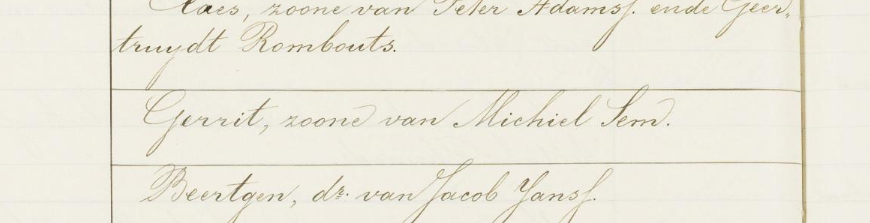 Claes, zoone van Peter Adamss. ende Geer-
truydt Rombouts.
Gerrit, zoone van Michiel Sem.
Beertgen, dr. van Jacob Janss.